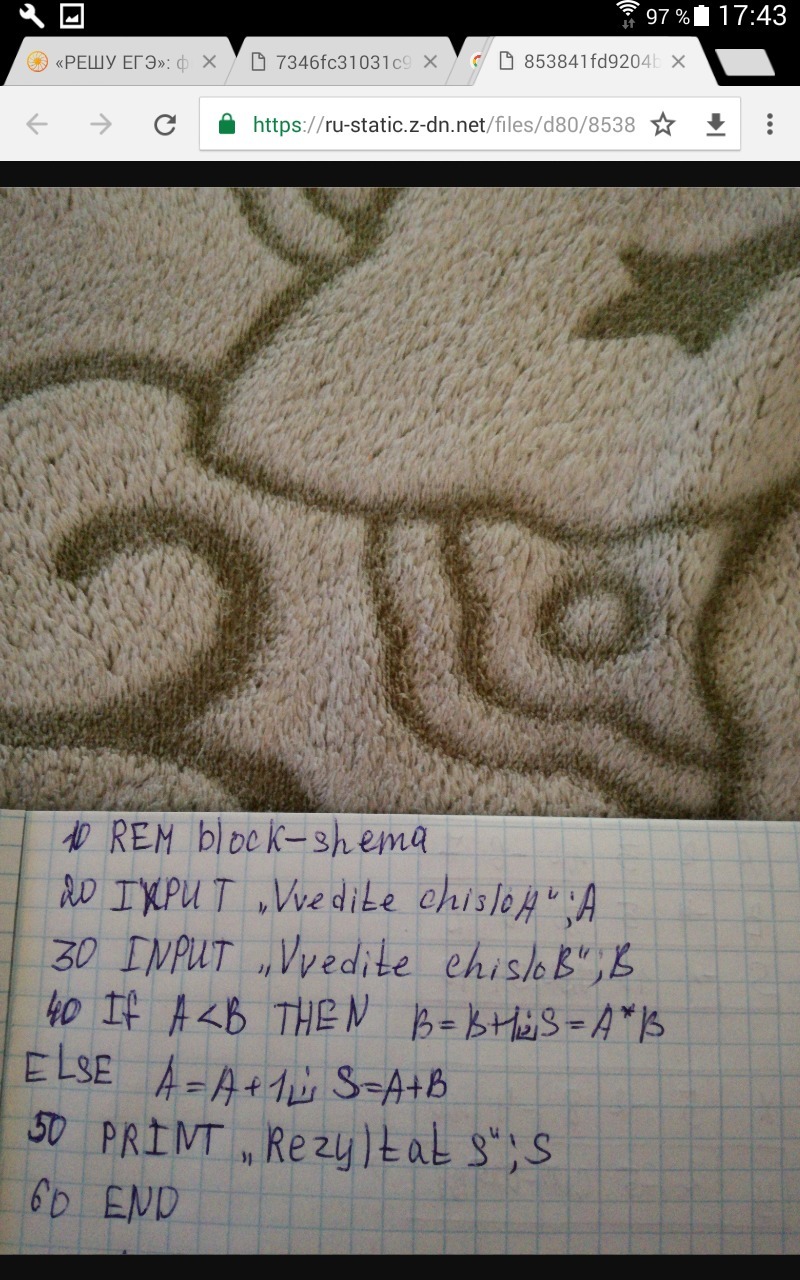 97 % 17:43
«РЕШУ ЕГЭ»: ф 7346fc31031c9 853841fd9204b
https://ru-static.z-dn.net/files/d80/8538
10 REM block-shema
20 INPUT „Vvedite chislo A“;A
30 INPUT „Vvedite chislo B“;B
40 If A<B THEN B=B+1:S=A*B
ELSE A=A+1: S=A+B
50 PRINT „Rezyltat S“;S
60 END